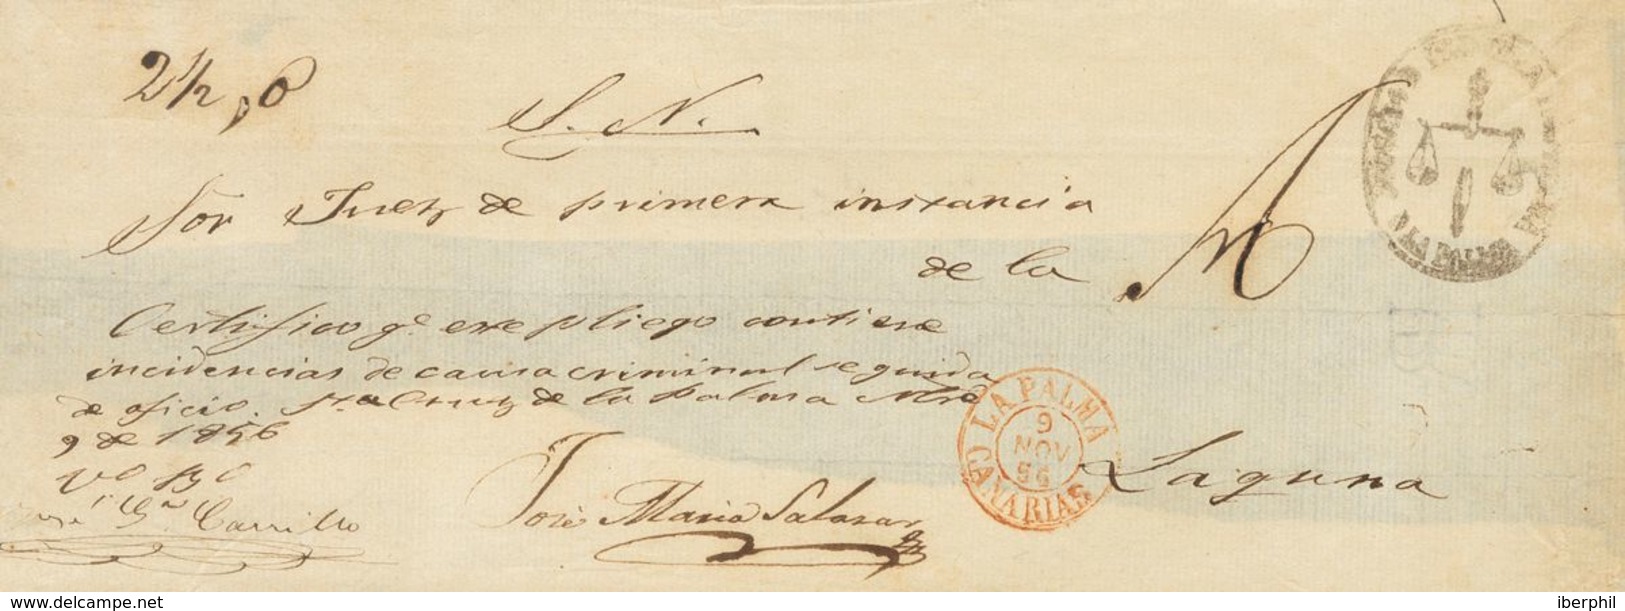 2 1/2 , o
S. N.
Sor Juez de primera instancia
de la
Certifico qe. este pliego contiene
incidencias de causa criminal seguida
de oficio. Sta Cruz de la Palma Nbre
9 de 1856
Vo Bo
José Ga Carrillo
José Maria Salazar
Laguna
LA PALMA
9
NOV
56
CANARIAS
JUZGADO
LA PALMA
www.delcampe.net
iberphil